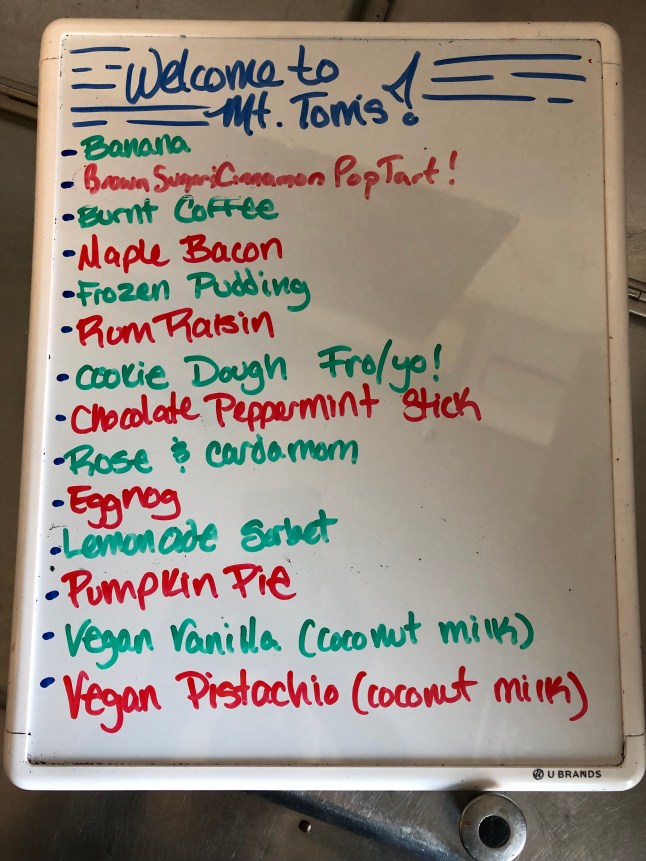 Welcome to
Mt. Tom's!
- Banana
- Brown Sugar Cinnamon PopTart!
- Burnt Coffee
- Maple Bacon
- Frozen Pudding
- Rum Raisin
- Cookie Dough Fro/yo!
- Chocolate Peppermint Stick
- Rose & Cardamom
- Eggnog
- Lemonade Sorbet
- Pumpkin Pie
- Vegan Vanilla (coconut milk)
- Vegan Pistachio (coconut milk)
U BRANDS